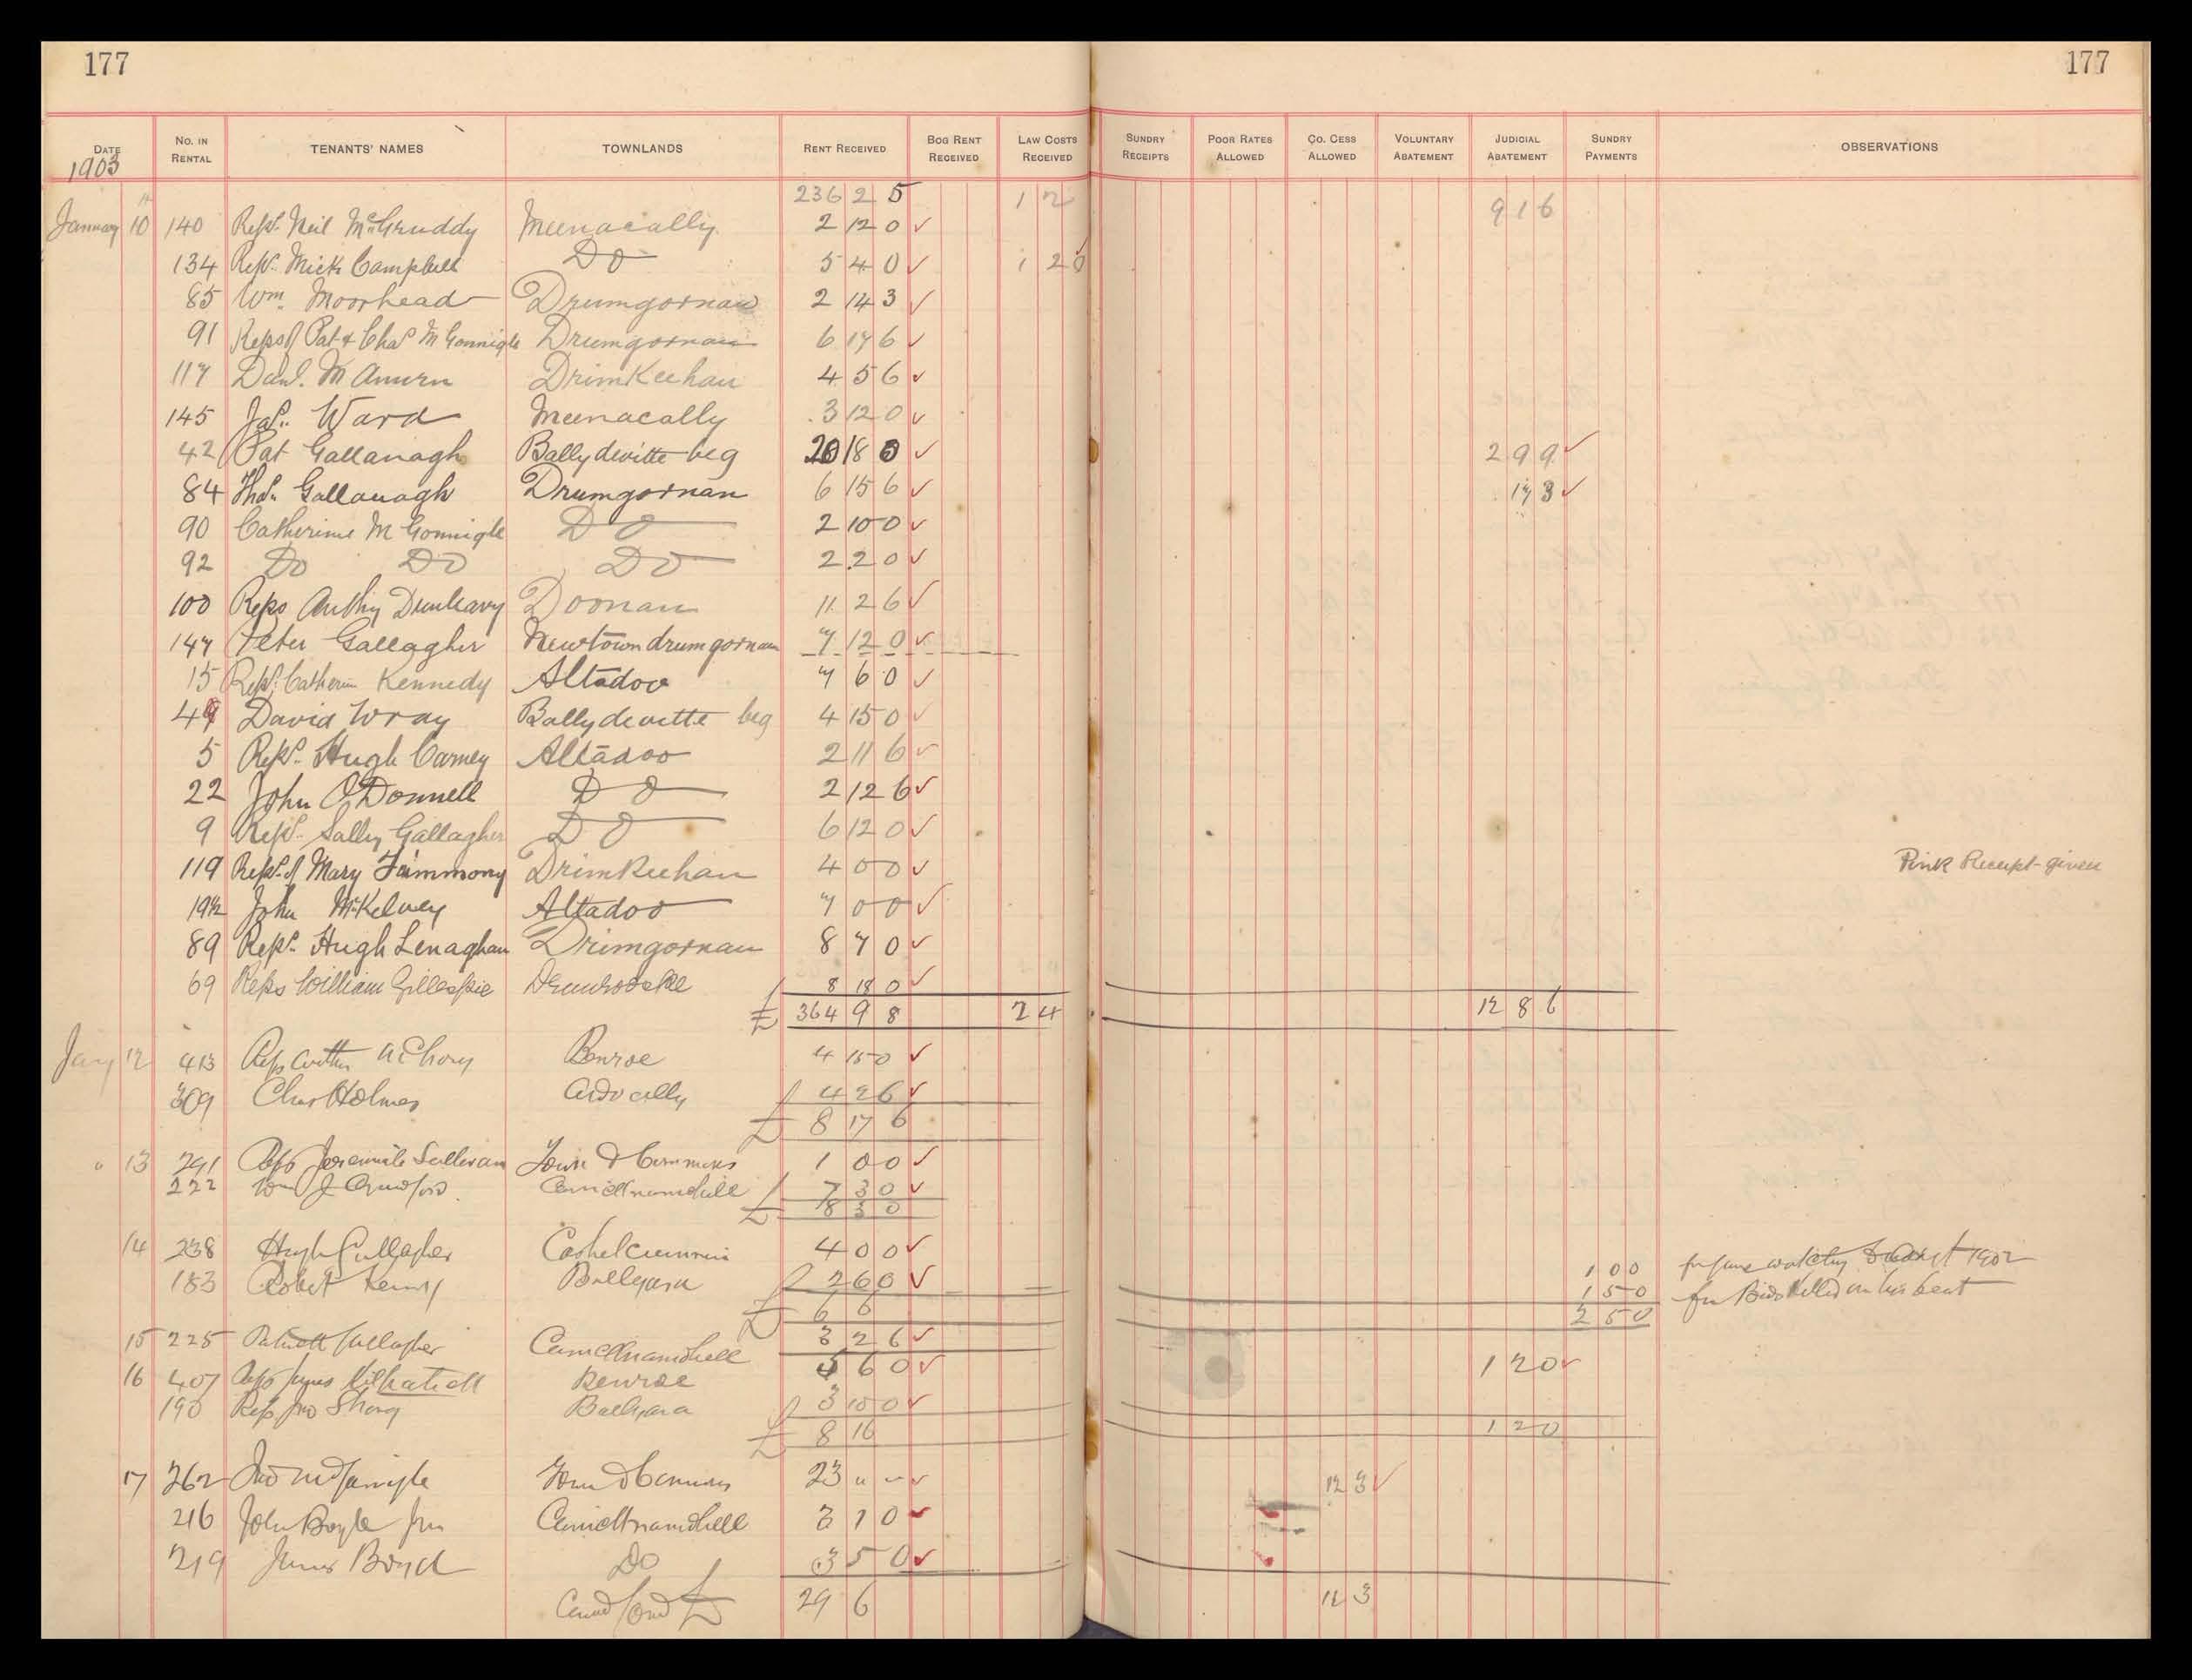 177 177
DATE No. IN RENTAL TENANTS' NAMES TOWNLANDS RENT RECEIVED BOG RENT RECEIVED LAW COSTS RECEIVED SUNDRY RECEIPTS POOR RATES ALLOWED CO. CESS ALLOWED VOLUNTARY ABATEMENT JUDICIAL ABATEMENT SUNDRY PAYMENTS OBSERVATIONS
1903
236 2 5 1 2 9 1 6
January 10 140 Reps. Neil McGruddy Meenacally 2 12 0 ✓
134 Reps. Mick Campbell Do 5 4 0 ✓ 1 2 0 ✓
85 Wm. Moorhead Drumgornan 2 14 3 ✓
91 Reps of Pat & Chas McGonnigle Drumgornan 6 17 6 ✓
117 Danl. Drimkeehan 4 5 6 ✓
145 Jas. Ward Meenacally 3 12 0 ✓
42 Pat Gallanagh Ballydevitte beg 20 18 0 ✓ 2 9 9 ✓
84 Thos. Gallanagh Drumgornan 6 15 6 ✓ 17 3 ✓
90 Catherine McGonnigle Do 2 10 0 ✓
92 Do Do Do 2 2 0 ✓
100 Reps Anthy Dunleavy Doonan 11 2 6 ✓
147 Peter Gallagher Newtowndrumgornan 7 12 0 ✓
15 Reps. Catherin Kennedy Altadoo 7 6 0 ✓
49 David Wray Ballydevitte beg 4 15 0 ✓
5 Reps. Hugh Carney Altadoo 2 11 6 ✓
22 John O'Donnell Do 2 12 6 ✓
9 Reps. Sally Gallagher Do 6 12 0 ✓
119 Reps. of Mary Timmony Drimkeehan 4 0 0 ✓ Pink Receipt given
192 John McKelvey Altadoo 7 0 0 ✓
89 Reps. Hugh Lenaghan Drimgornan 8 7 0 ✓
69 Reps William Gillespie Drumrooske 8 18 0 ✓
£ 364 9 8 2 4 12 8 6
Jany 12 413 Reps Benroe 4 15 0 ✓
309 Chas Holmes 4 2 6 ✓
£ 8 17 6
" 13 291 Reps Jeremiah Sullivan Town & Commons 1 0 0 ✓
222 Wm J Crawford Carricknamohill 7 3 0 ✓
£ 8 3 0
14 238 Hugh Gallagher Cashelcummin 4 0 0 ✓ 1 0 0 for game watching 1902
183 Robert Ballyara 2 6 0 ✓ 1 5 0 for Birds killed on his beat
£ 6 6 2 5 0
15 225 Patrick Gallagher Carricknamohill 3 2 6 ✓
16 407 Reps James Kilpatrick Benroe 5 6 0 ✓ 1 2 0 ✓
190 Reps Jno Ballyara 3 10 0 ✓
£ 8 16 1 2 0
17 262 Jno McGonigle Town & Commons 23 " - ✓ 12 3 ✓
216 John Boyle Jun Carricknamohill 3 1 0 ✓
219 James Boyd Do 3 5 0 ✓
£ 29 6 12 3